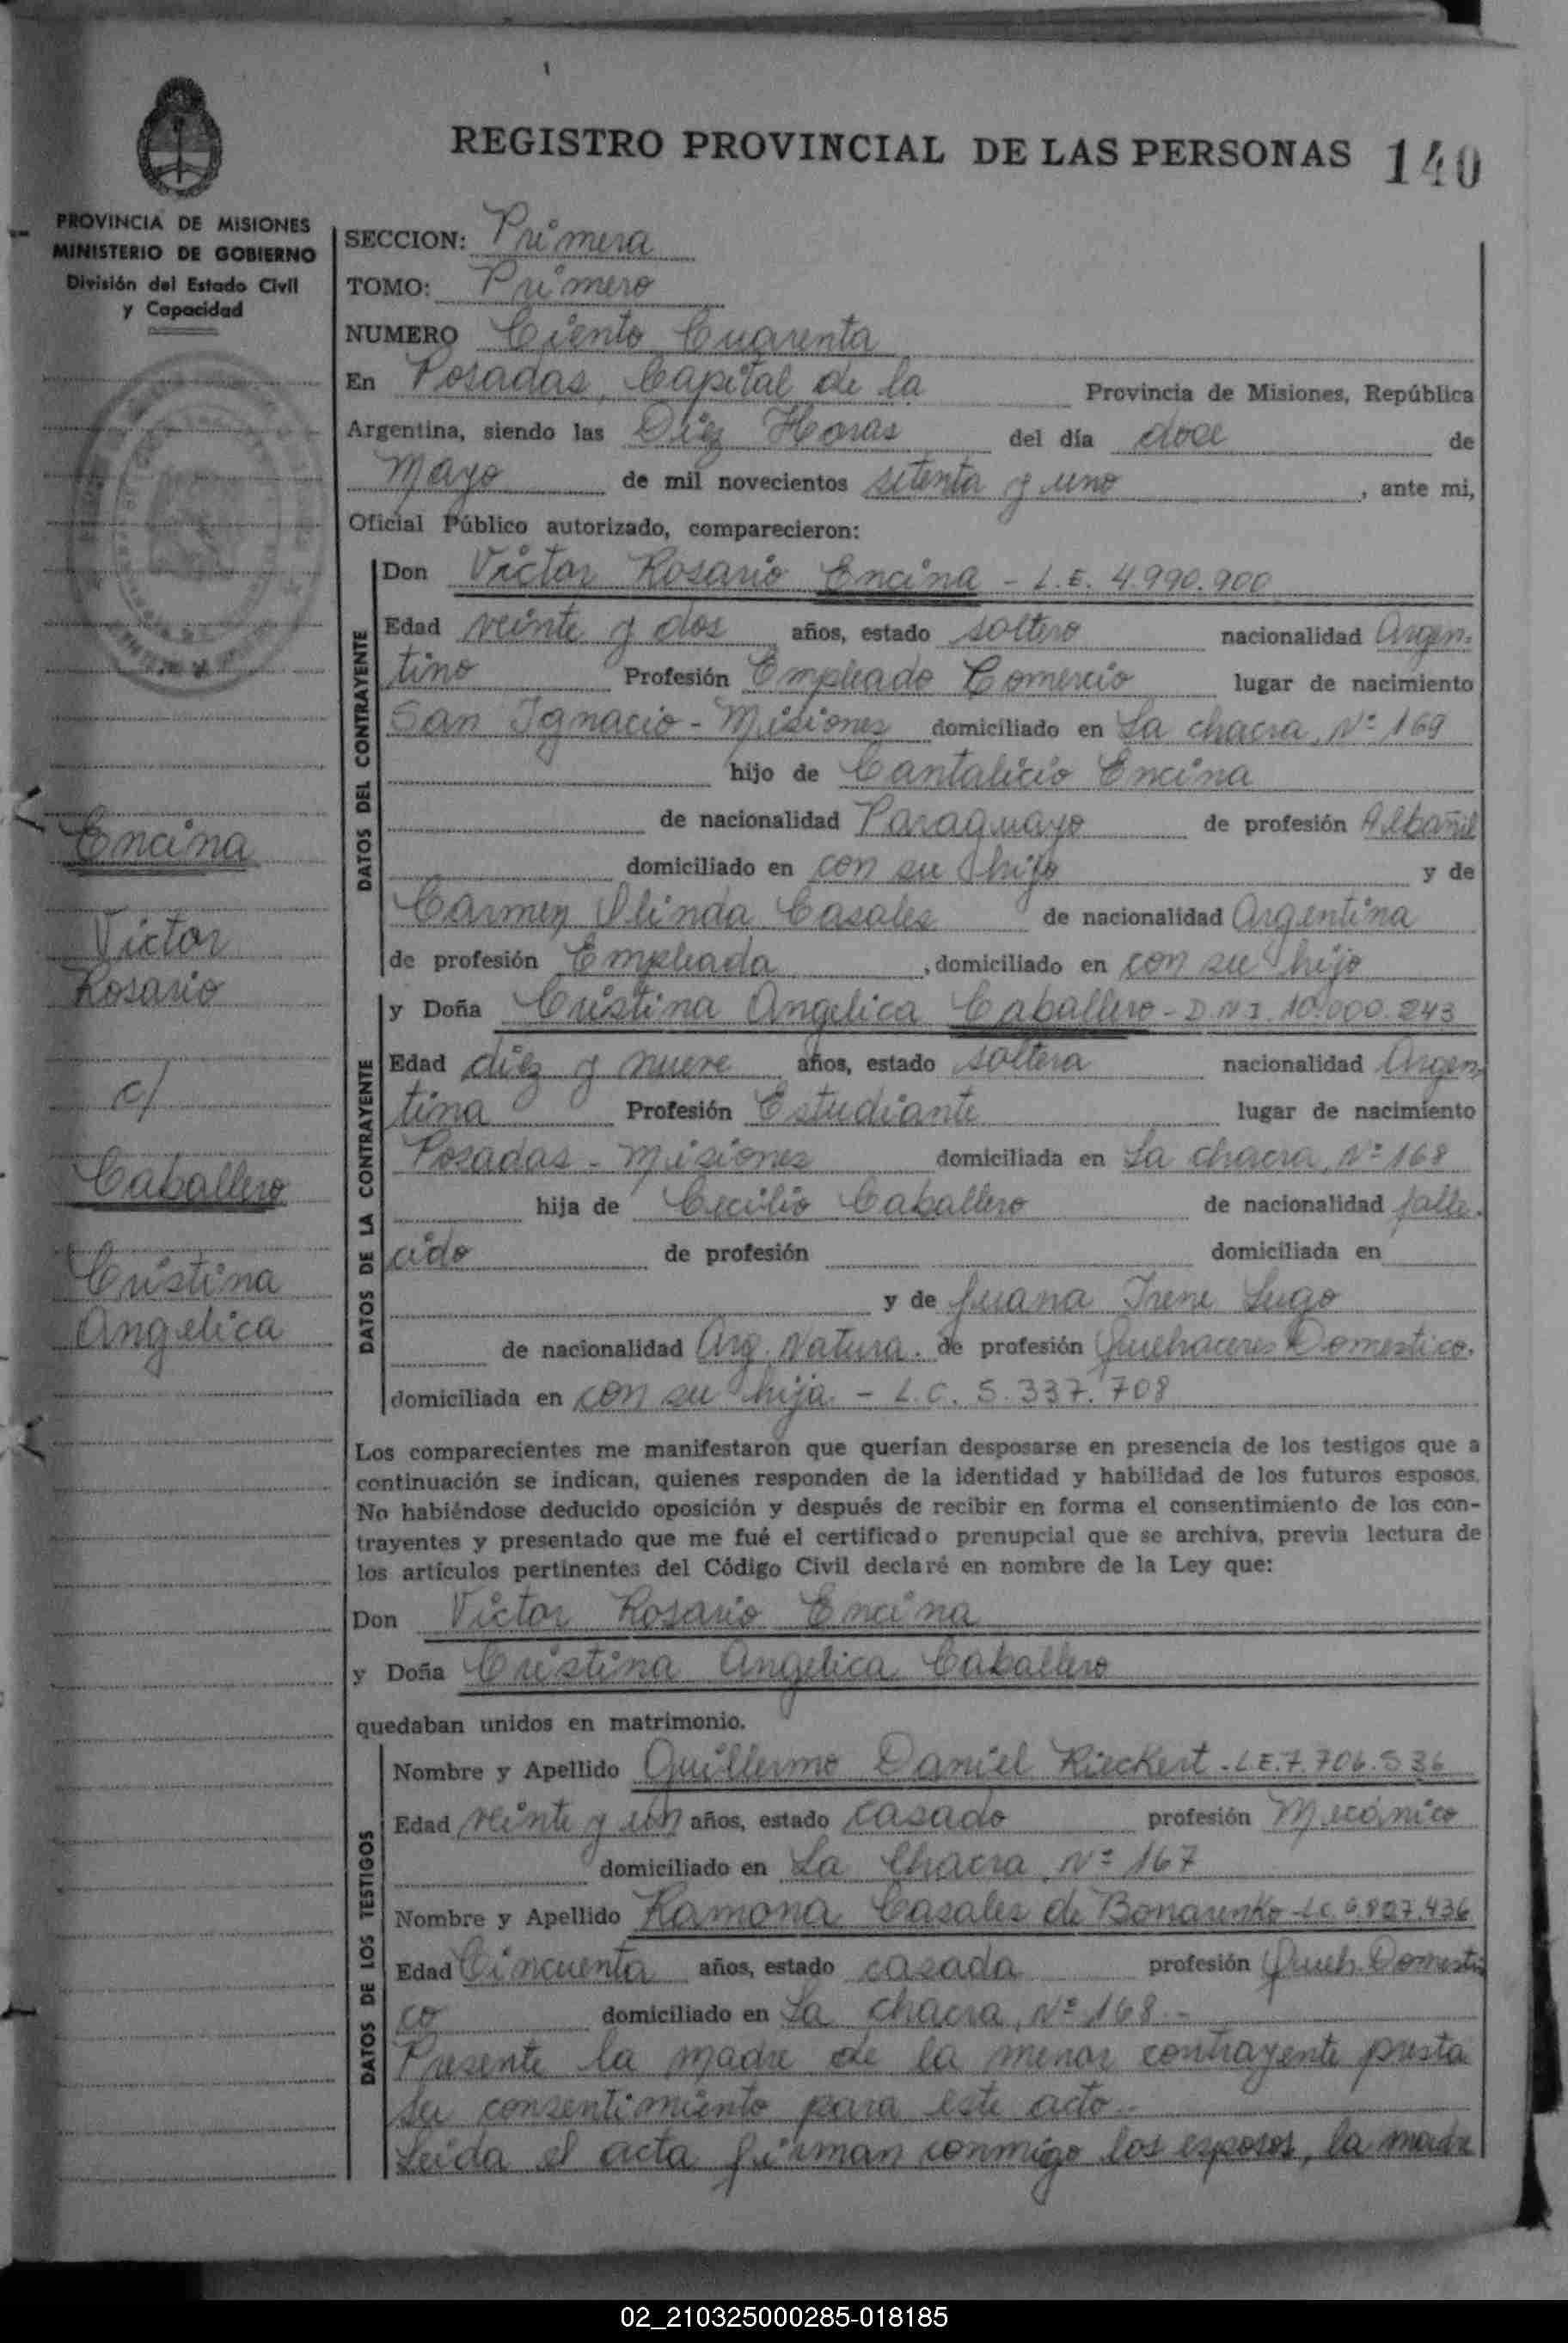 REGISTRO PROVINCIAL DE LAS PERSONAS 140
PROVINCIA DE MISIONES
MINISTERIO DE GOBIERNO
División del Estado Civil
y Capacidad
SECCION: Primera
TOMO: Primero
NUMERO Ciento Cuarenta
En Posadas, Capital de la Provincia de Misiones, República
Argentina, siendo las Diez Horas del día doce de
Mayo de mil novecientos setenta y uno, ante mi,
Oficial Público autorizado, comparecieron:
DATOS DEL CONTRAYENTE
Don Victor Rosario Encina - L.E. 4.990.900
Edad veinte y dos años, estado soltero nacionalidad Argen-
tino Profesión Empleado Comercio lugar de nacimiento
San Ignacio - Misiones domiciliado en La chacra, Nº 169
hijo de Cantalicio Encina
de nacionalidad Paraguayo de profesión Albañil
domiciliado en con su hijo y de
Carmen Olinda Casales de nacionalidad Argentina
de profesión Empleada, domiciliado en con su hijo
DATOS DE LA CONTRAYENTE
y Doña Cristina Angelica Caballero - D.N.I. 10.000.243
Edad diez y nueve años, estado soltera nacionalidad Argen
tina Profesión Estudiante lugar de nacimiento
Posadas - Misiones domiciliada en La chacra, Nº 168
hija de Cecilio Caballero de nacionalidad falle.
cido de profesión domiciliada en
y de Juana Irene Lugo
de nacionalidad Arg. Natura. de profesión Quehaceres Domestico.
domiciliada en con su hija - L.C. 5.337.708
Los comparecientes me manifestaron que querían desposarse en presencia de los testigos que a
continuación se indican, quienes responden de la identidad y habilidad de los futuros esposos.
No habiéndose deducido oposición y después de recibir en forma el consentimiento de los con-
trayentes y presentado que me fué el certificado prenupcial que se archiva, previa lectura de
los artículos pertinentes del Código Civil declaré en nombre de la Ley que:
Don Victor Rosario Encina
y Doña Cristina Angelica Caballero
quedaban unidos en matrimonio.
DATOS DE LOS TESTIGOS
Nombre y Apellido Guillermo Daniel Rieckert - L.E. 7.706.536
Edad veinte y un años, estado casado profesión Mecánico
domiciliado en La Chacra, Nº 167
Nombre y Apellido Ramona Casales de Bonarenko L.C. 6.827.436
Edad Cincuenta años, estado casada profesión Queh. Domesti
co domiciliado en La chacra, Nº 168 -
Presente la madre de la menor contrayente presta
su consentimiento para este acto.-
Leida el acta firman conmigo los esposos, la madre
Encina
Victor
Rosario
c/
Caballero
Cristina
Angelica
02_210325000285-018185